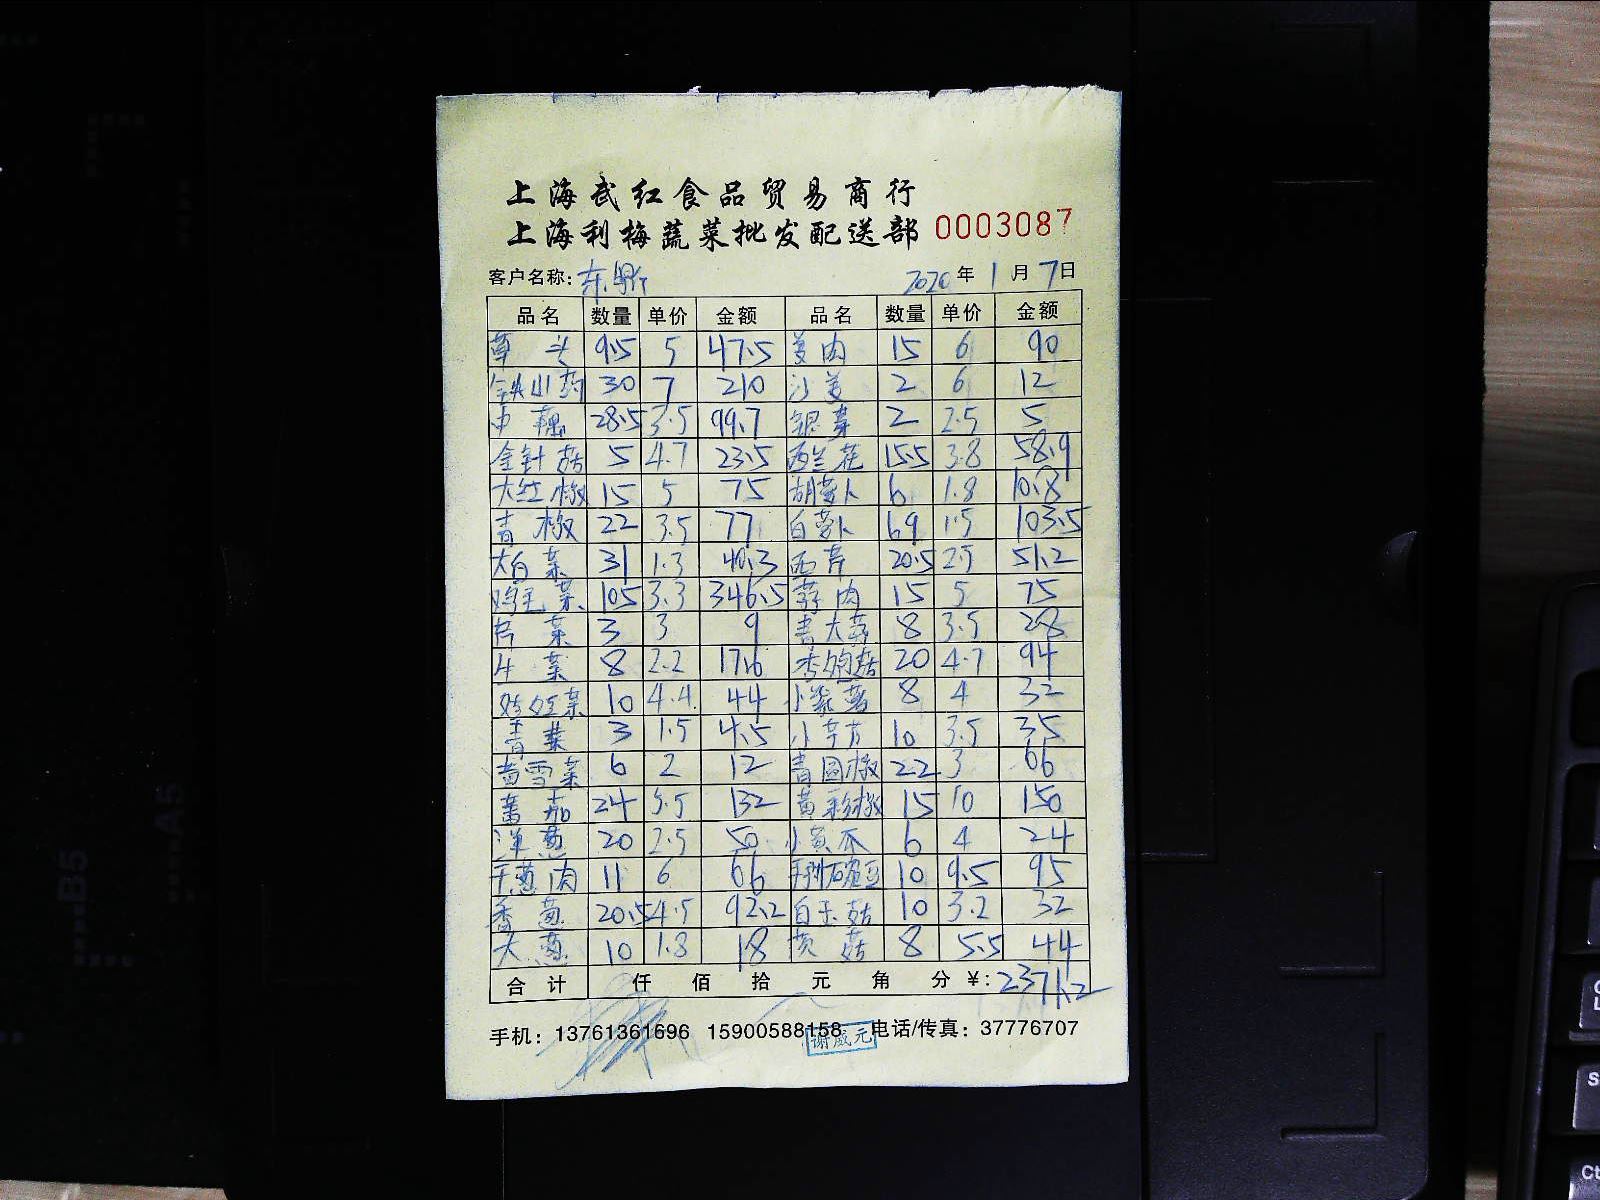 上海武红食品贸易商行
上海利梅蔬菜批发配送部 0003087
客户名称: 东 2020年1月7日
品名 数量 单价 金额 品名 数量 单价 金额
草头 9.5 5 47.5 姜肉 15 6 90
铁山药 30 7 210 沙姜 2 6 12
中藕 28.5 3.5 99.7 银芽 2 2.5 5
金针菇 5 4.7 23.5 西兰花 15.5 3.8 58.9
大红椒 15 5 75 胡萝卜 6 1.8 10.8
青椒 22 3.5 77 白萝卜 69 1.5 103.5
大白菜 31 1.3 40.3 西芹 20.5 2.5 51.2
鸡毛菜 105 3.3 346.5 蒜肉 15 5 75
菜 3 3 9 青大蒜 8 3.5 28
生菜 8 2.2 17.6 香菇 20 4.7 94
菜 10 4.4 44 小紫薯 8 4 32
青韭 3 1.5 4.5 小芋艿 10 3.5 35
雪菜 6 2 12 青圆椒 22 3 66
番茄 24 5.5 132 黄彩椒 15 10 150
洋葱 20 2.5 50 小黄瓜 6 4 24
干葱肉 11 6 66 豆 10 9.5 95
香葱 20.5 4.5 92.2 白玉菇 10 3.2 32
大葱 10 1.8 18 菇 8 5.5 44
合计 仟 佰 拾 元 角 分 ¥: 2371.2
手机: 13761361696 15900588158 电话/传真: 37776707
谢咸元
B5
A5